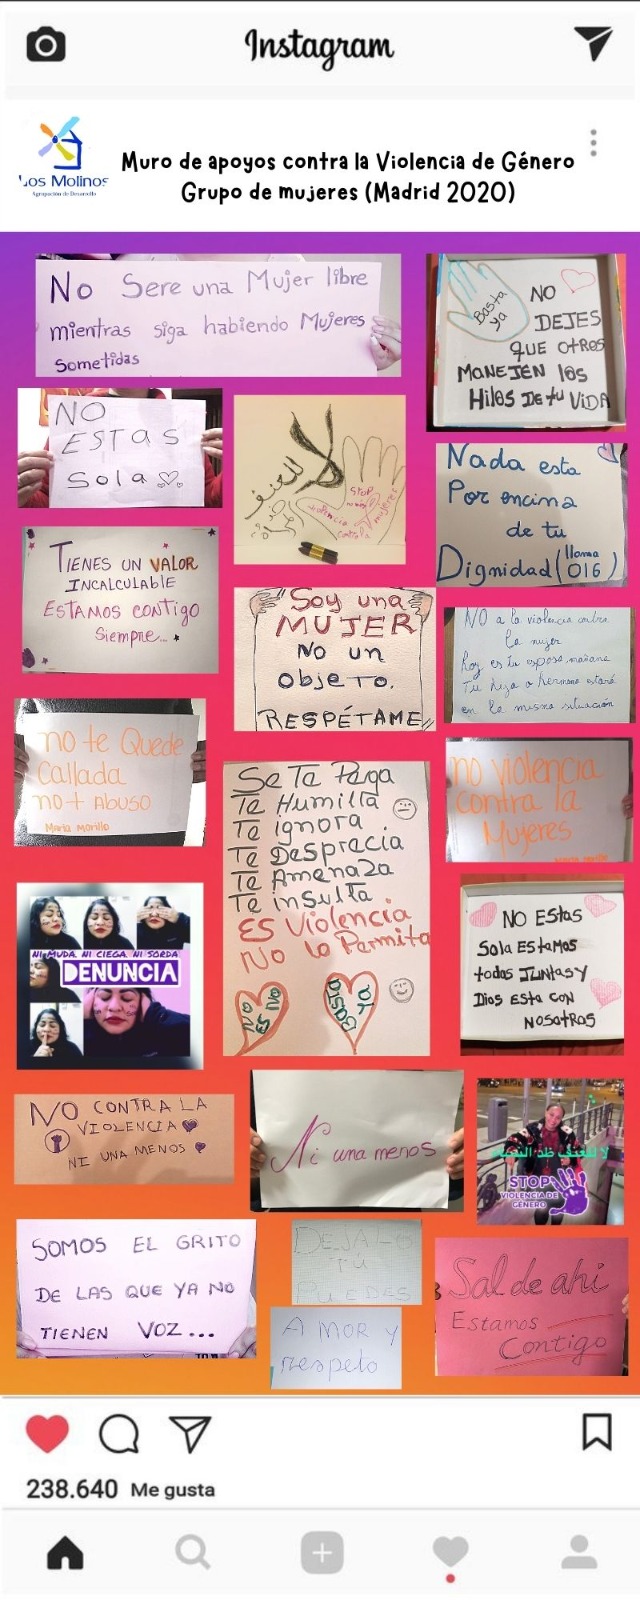 Instagram
Los Molinos
Agrupación de Desarrollo
Muro de apoyos contra la Violencia de Género
Grupo de mujeres (Madrid 2020)
No Sere una Mujer libre
mientras siga habiendo Mujeres
Sometidas
Basta
ya
NO
DEJES
QUE OTROS
MANEJEN los
Hilos DE tu ViDA
NO
ESTAS
Sola
لا للعنف
STOP
violencia
contra
mujeres
Nada esta
Por encima
de tu
Dignidad (llama 016)
TIENES UN VALOR
INCALCULABLE
ESTAMOS CONTIGO
Siempre...
Soy una
MUJER
No un
objeto.
RESPÉTAME
NO a la violencia contra
la mujer
hoy es tu esposa mañana
Tu hija o hermana estará
en la misma situación
no te Quede
Callada
no + ABUSO
Maria Morillo
no violencia
contra la
Mujeres
Maria Morillo
Se Te Pega
Te Humilla
Te ignora
Te Desprecia
Te Amenaza
Te insulta
ES Violencia
No lo Permita
NO
ES NO
NI MUDA. NI CIEGA. NI SORDA
DENUNCIA
NO EStas
Sola EstAmos
todas JUNtAS Y
Dios EstA CON
NOSOtRAS
NO CONTRA LA
VIOLENCIA
NI UNA MENOS
Ni una menos
لا للعنف ضد النساء
STOP
VIOLENCIA DE
GÉNERO
SOMOS EL GRITO
DE LAS QUE YA NO
TIENEN VOZ...
DEJALO
TÚ
PUEDES
AMOR Y
respeto
Sal de ahi
Estamos
Contigo
238.640 Me gusta